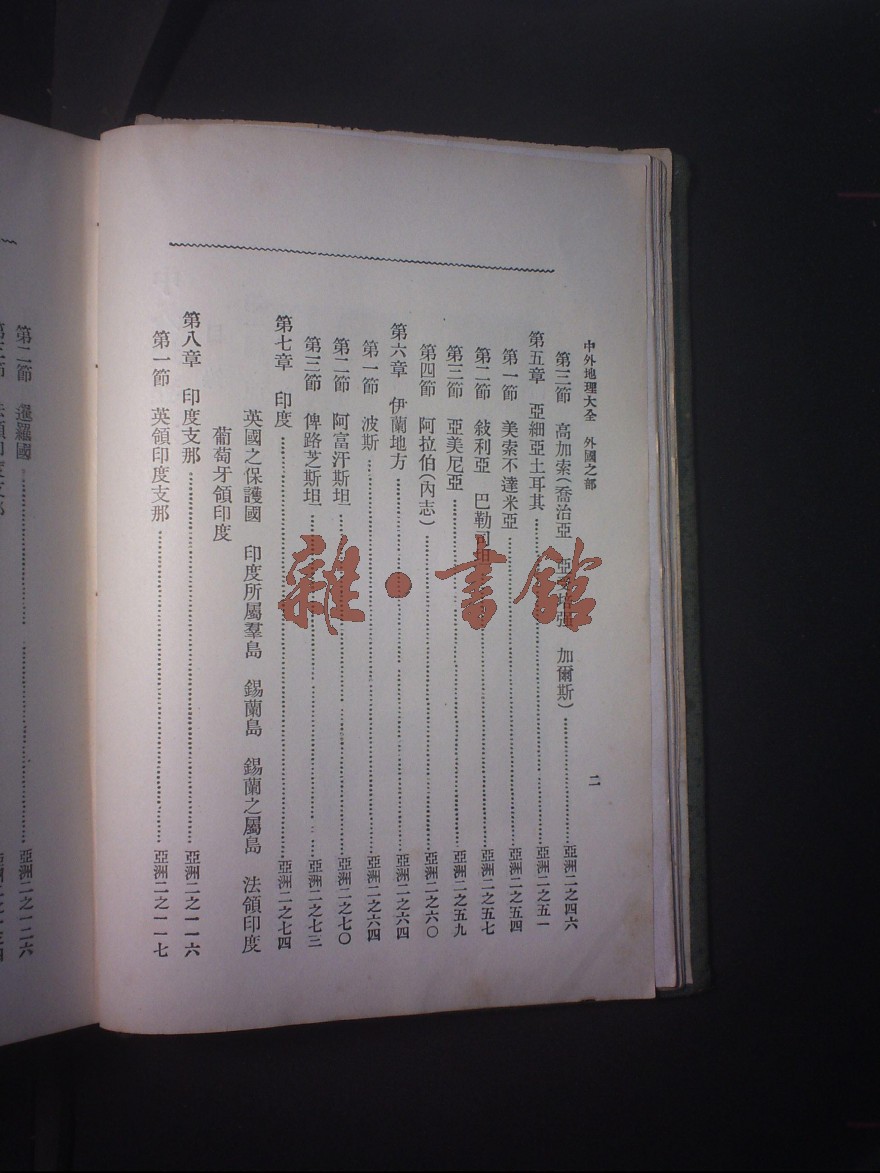 中外地理大全　外國之部
二
第三節　高加索(喬治亞　加爾斯)……亞洲二之四六
第五章　亞細亞土耳其……亞洲二之五一
第一節　美索不達米亞……亞洲二之五四
第二節　敍利亞　巴勒……亞洲二之五七
第三節　亞美尼亞……亞洲二之五九
第四節　阿拉伯(內志)……亞洲二之六〇
第六章　伊蘭地方……亞洲二之六四
第一節　波斯……亞洲二之六四
第二節　阿富汗斯坦……亞洲二之七〇
第三節　俾路芝斯坦……亞洲二之七三
第七章　印度……亞洲二之七四
英國之保護國　印度所屬羣島　錫蘭島　錫蘭之屬島　法領印度
葡萄牙領印度
第八章　印度支那……亞洲二之一一六
第一節　英領印度支那……亞洲二之一一七
第二節　暹羅國……亞洲二之一二六
法領印度支那
雜·書館